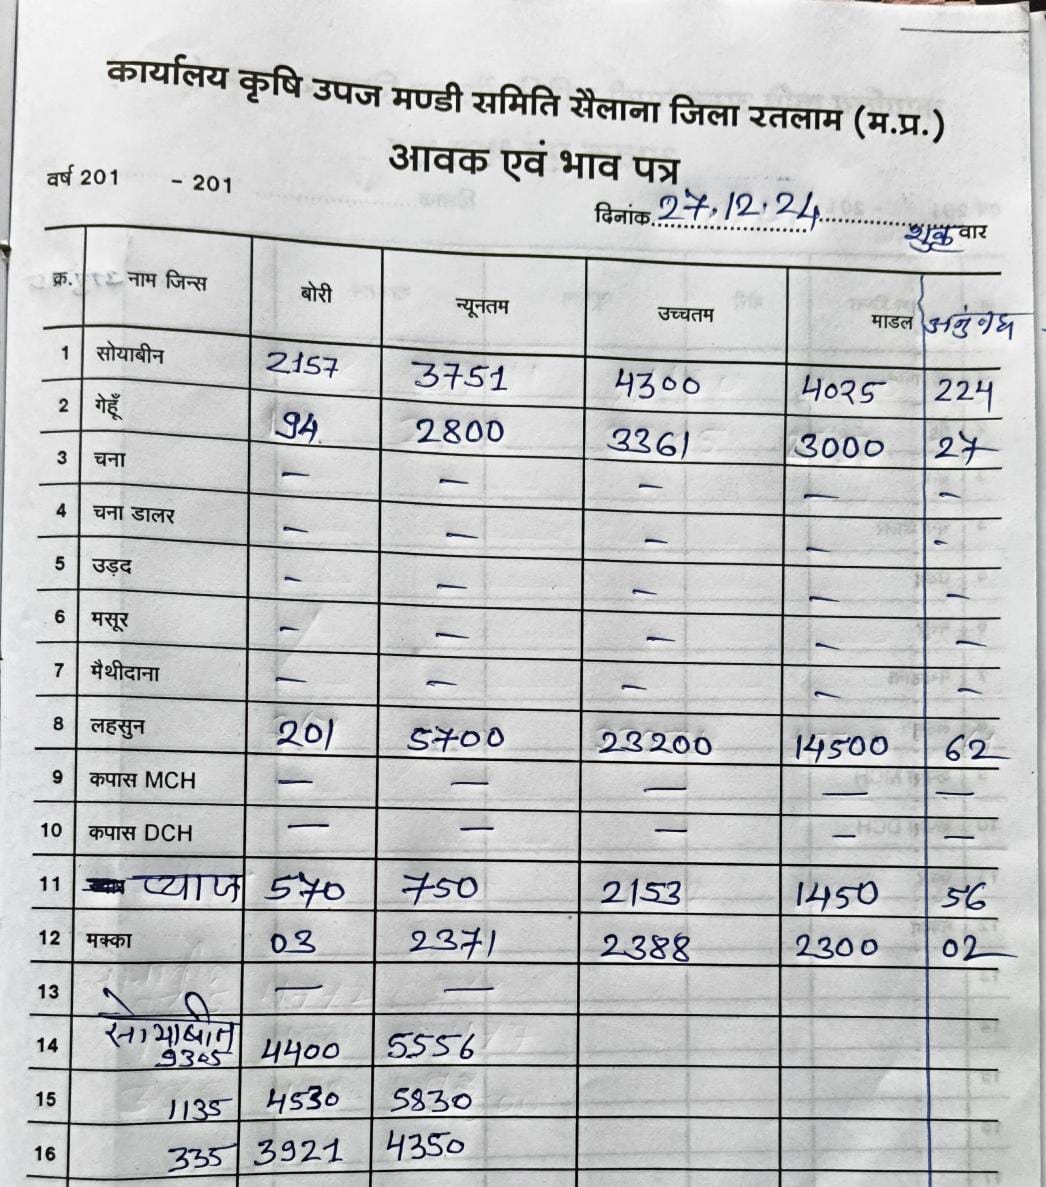 कार्यालय कृषि उपज मण्डी समिति सैलाना जिला रतलाम (म.प्र.)
आवक एवं भाव पत्र
वर्ष 201 - 201
दिनांक. 27.12.24
शुक्र वार
क्र. नाम जिन्स बोरी न्यूनतम उच्चतम माडल अनुंबध
1 सोयाबीन 2157 3751 4300 4025 224
2 गेहूँ 94 2800 3361 3000 27
3 चना – – – – –
4 चना डालर – – – – –
5 उड़द – – – – –
6 मसूर – – – – –
7 मैथीदाना – – – – –
8 लहसुन 201 5700 23200 14500 62
9 कपास MCH – – – – –
10 कपास DCH – – – – –
11 प्याज 570 750 2153 1450 56
12 मक्का 03 2371 2388 2300 02
13 – –
सोयाबीन
14 9305 4400 5556
15 1135 4530 5830
16 335 3921 4350